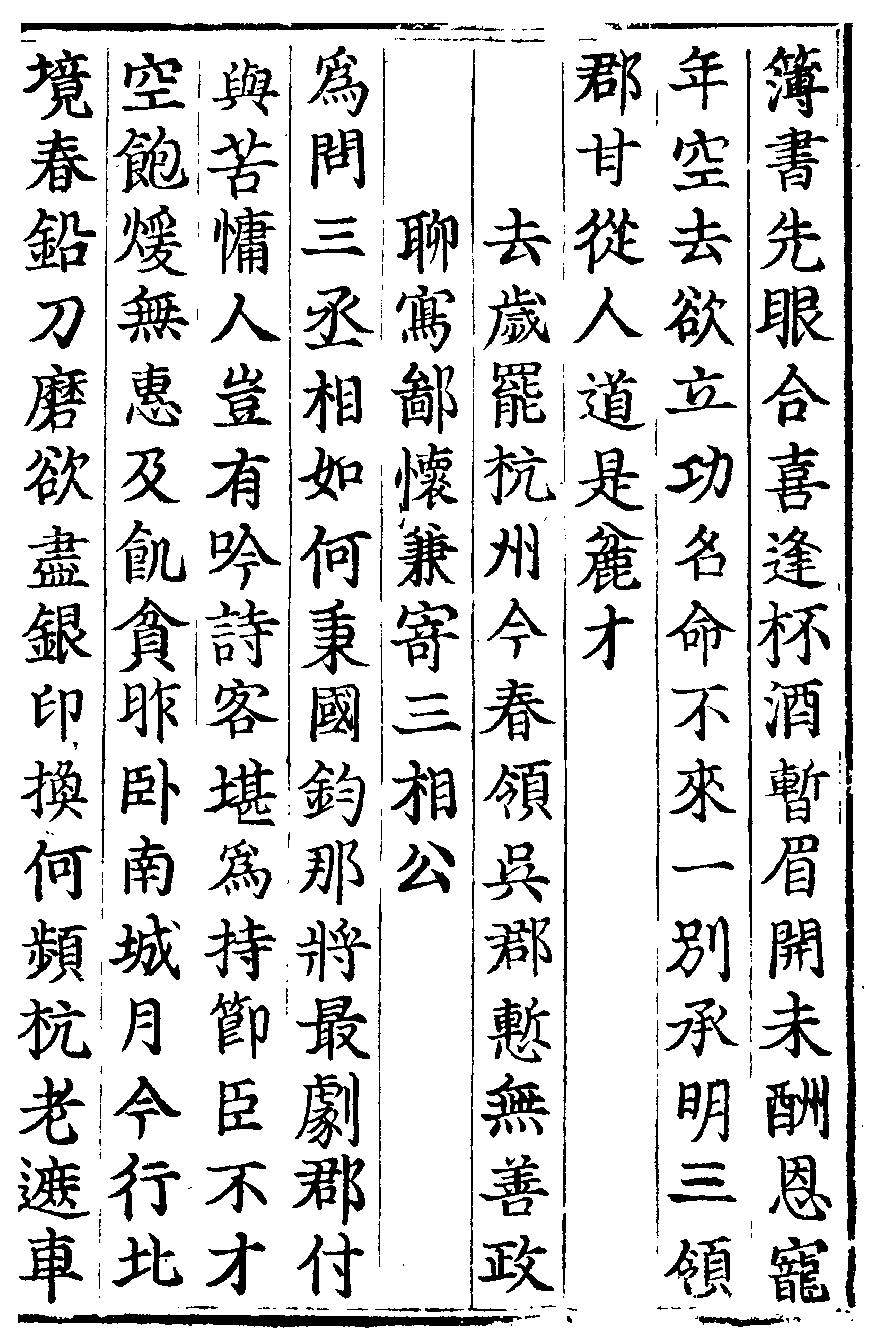 簿書先眼合喜逢杯酒暫眉開未酬恩寵
年空去欲立功名命不來一別承明三領
郡甘從人道是麄才
去歲罷杭州今春領吳郡慙無善政
聊寫鄙懷兼寄三相公
爲問三丞相如何秉國鈞那將最劇郡付
與苦慵人豈有吟詩客堪爲持節臣不才
空飽煖無惠及飢貧昨卧南城月今行北
境春鉛刀磨欲盡銀印換何頻杭老遮車